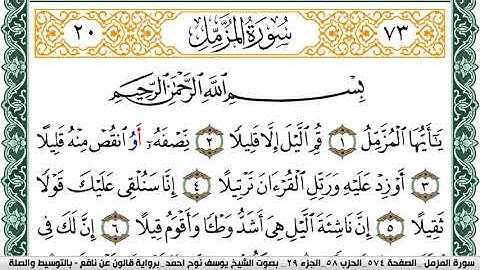 ٧٣ سُورَةُ الْمُزَّمِّلِ ٢٠
بِسْمِ اللَّهِ الرَّحْمَٰنِ الرَّحِيمِ
يَٰأَيُّهَا الْمُزَّمِّلُ ١ قُمِ الَّيْلَ إِلَّا قَلِيلًا ٢ نِّصْفَهُۥ أَوُ انقُصْ مِنْهُ قَلِيلًا
٣ أَوْ زِدْ عَلَيْهِ وَرَتِّلِ الْقُرْءَانَ تَرْتِيلًا ٤ إِنَّا سَنُلْقِى عَلَيْكَ قَوْلًا
ثَقِيلًا ٥ إِنَّ نَاشِئَةَ الَّيْلِ هِىَ أَشَدُّ وَطْـًٔا وَأَقْوَمُ قِيلًا ٦ إِنَّ لَكَ فِى
سورة المزمل _ الصفحة ٥٧٤_ الحزب ٥٨_ الجزء ٢٩_ بصوت الشيخ يوسف نوح احمد_ برواية قالون عن نافع - بالتوسيط والصلة